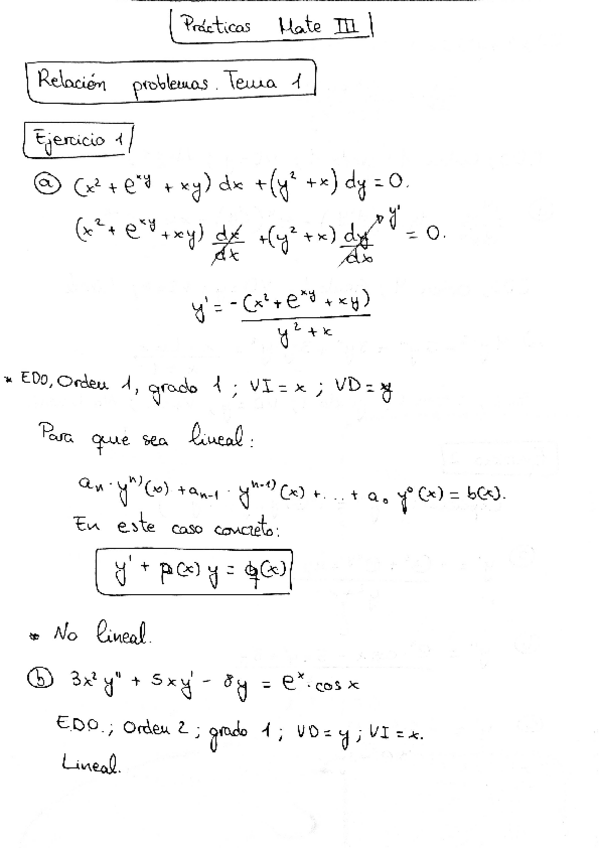 Prácticas Mate III
Relación problemas. Tema 1
Ejercicio 1
ⓐ (x² + e^xy + xy) dx + (y² + x) dy = 0.
(x² + e^xy + xy) dx/dx + (y² + x) dy/dx y' = 0.
y' = -(x² + e^xy + xy) / y² + x
* EDO, Orden 1, grado 1 ; VI = x ; VD = y
Para que sea lineal:
aₙ · yⁿ⁾(x) + aₙ₋₁ · yⁿ⁻¹⁾(x) + ... + a₀ y⁰(x) = b(x).
En este caso concreto:
y' + p(x) y = q(x)
* No lineal.
ⓑ 3x² y'' + 5xy' - 8y = eˣ · cos x
E.D.O.; Orden 2 ; grado 1 ; VD = y ; VI = x.
Lineal.